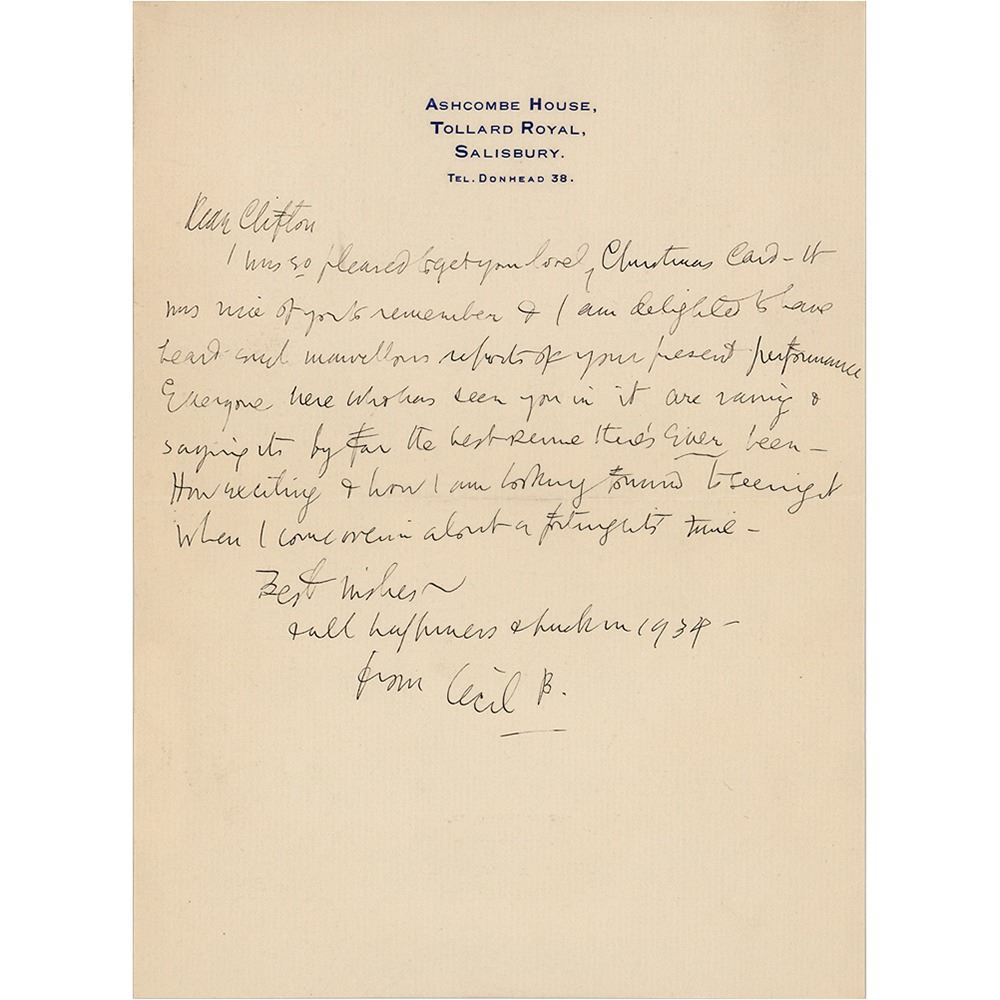 ASHCOMBE HOUSE,
TOLLARD ROYAL,
SALISBURY.
TEL. DONHEAD 38.
Dear Clifton
I was so pleased to get your lovely Christmas Card – It
was nice of you to remember & I am delighted to have
heard such marvellous reports of your present performance
Everyone here who has seen you in it are raving &
saying its by far the best revue there's Ever been –
How exciting & how I am looking forward to seeing it
when I come over in about a fortnight's time –
Best wishes
& all happiness & luck in 1934 –
from Cecil B.